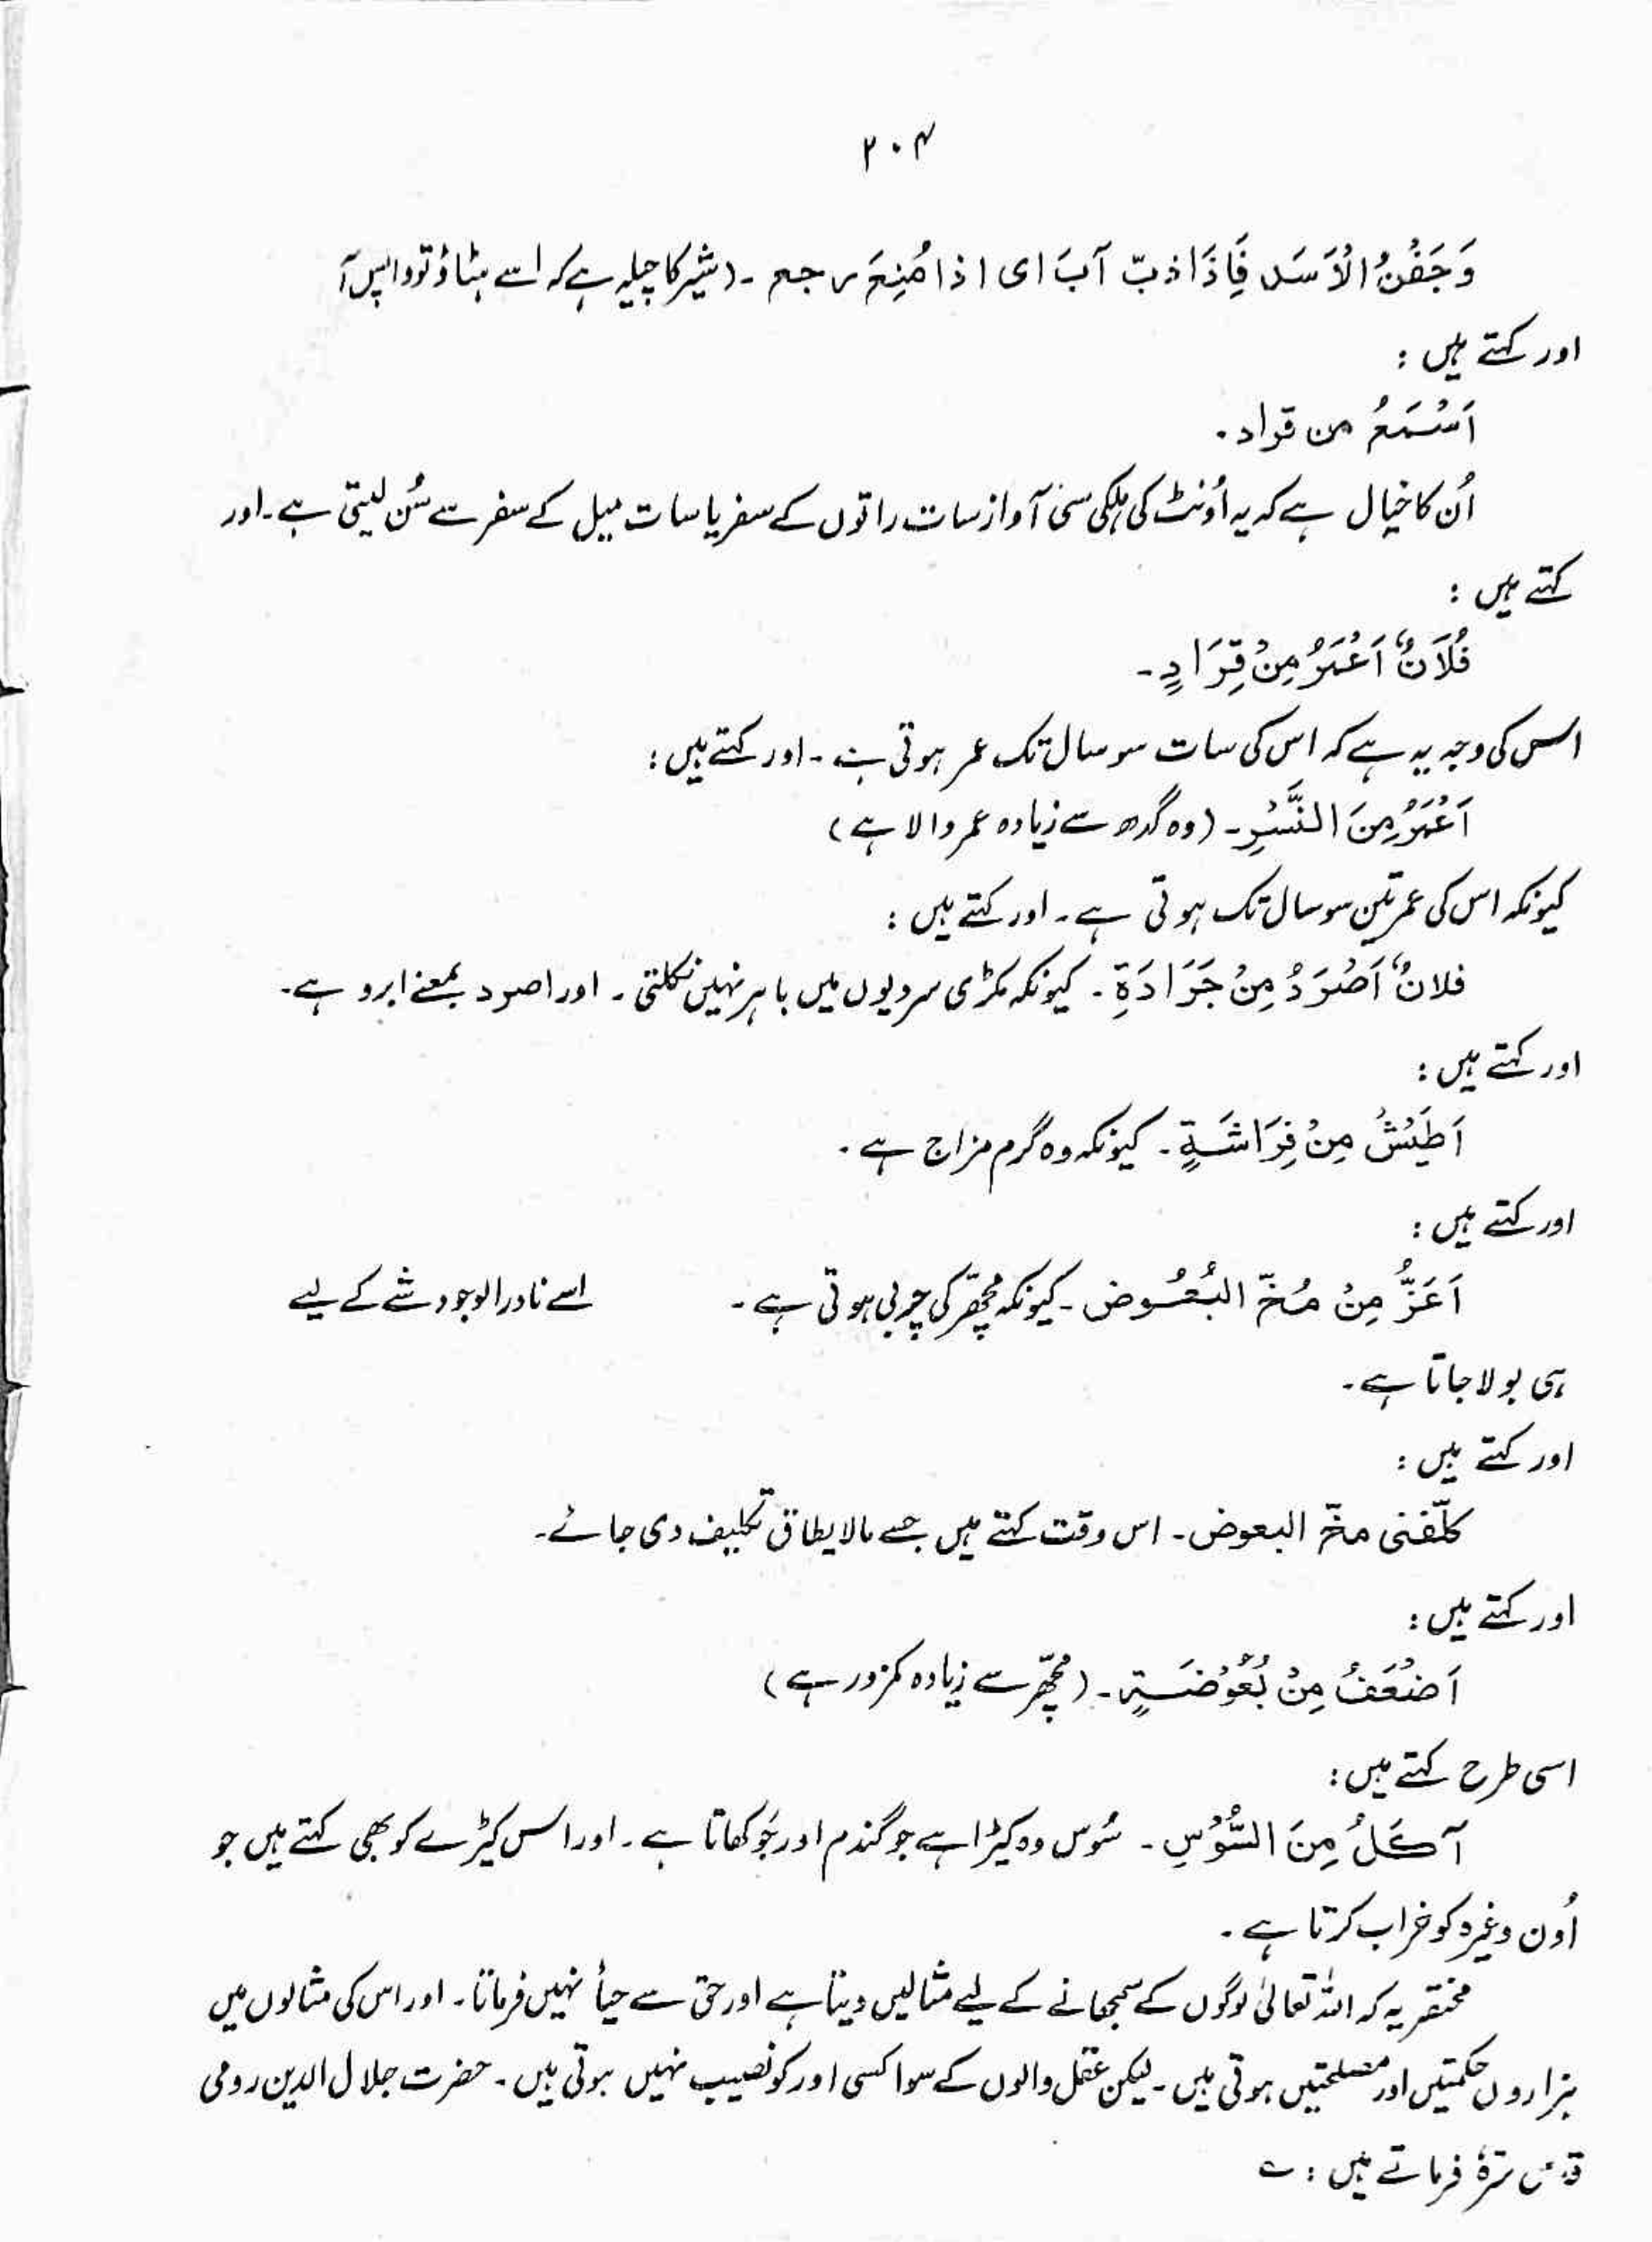 ۲۰۴
وَجَفْنُ الْاَسَد فَاِذَا ذبّ آبَ ای اذا مُنِعَ رجع ۔ (شیر کا چیلہ ہے کہ اسے ہٹاؤ تو واپس آ
اور کہتے ہیں :
اَسْمَعُ من قراد ۔
اُن کا خیال ہے کہ یہ اُونٹ کی ہلکی سی آواز سات راتوں کے سفر یا سات میل کے سفر سے سُن لیتی ہے ۔ اور
کہتے ہیں :
فُلَانٌ اَعْمَرُ مِنْ قِرَادٍ ۔
اس کی وجہ یہ ہے کہ اس کی سات سو سال تک عمر ہوتی ہے ۔ اور کہتے ہیں :
اَعْمَرُ مِنَ النَّسْرِ ۔ (وہ گدھ سے زیادہ عمر والا ہے)
کیونکہ اس کی عمر تین سو سال تک ہوتی ہے ۔ اور کہتے ہیں :
فلانٌ اَصْرَدُ مِنْ جَرَادَةٍ ۔ کیونکہ مکڑی سردیوں میں باہر نہیں نکلتی ۔ اور اصرد بمعنے ابرد ہے ۔
اور کہتے ہیں :
اَطْیَشُ مِنْ فِرَاشَةٍ ۔ کیونکہ وہ گرم مزاج ہے ۔
اور کہتے ہیں :
اَعَزُّ مِنْ مُخّ البُعُوض ۔ کیونکہ مچھّر کی چربی ہوتی ہے ۔ اسے نادر الوجود شے کے لیے
ہی بولا جاتا ہے ۔
اور کہتے ہیں :
کلّفنی مخّ البعوض ۔ اس وقت کہتے ہیں جسے مالا یطاق تکلیف دی جائے ۔
اور کہتے ہیں :
اَضْعَفُ مِنْ بُعُوْضَةٍ ۔ (مچھّر سے زیادہ کمزور ہے)
اسی طرح کہتے ہیں :
آکَلُ مِنَ السُّوْسِ ۔ سُوس وہ کیڑا ہے جو گندم اور جَو کھاتا ہے ۔ اور اس کیڑے کو بھی کہتے ہیں جو
اُون وغیرہ کو خراب کرتا ہے ۔
مختصر یہ کہ اللہ تعالیٰ لوگوں کے سمجھانے کے لیے مثالیں دیتا ہے اور حق سے حیأ نہیں فرماتا ۔ اور اس کی مثالوں میں
ہزاروں حکمتیں اور مصلحتیں ہوتی ہیں ۔ لیکن عقل والوں کے سوا کسی اور کو نصیب نہیں ہوتی ہیں ۔ حضرت جلال الدین رومی
قدس سرّہٗ فرماتے ہیں : ؎